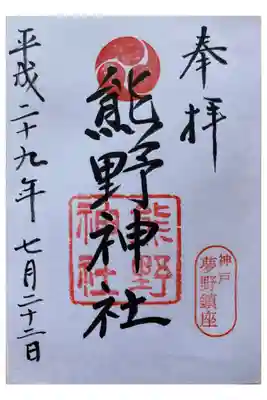 奉拝
神戸
夢野鎮座
熊野神社
熊野
神社
平成二十九年 七月二十二日